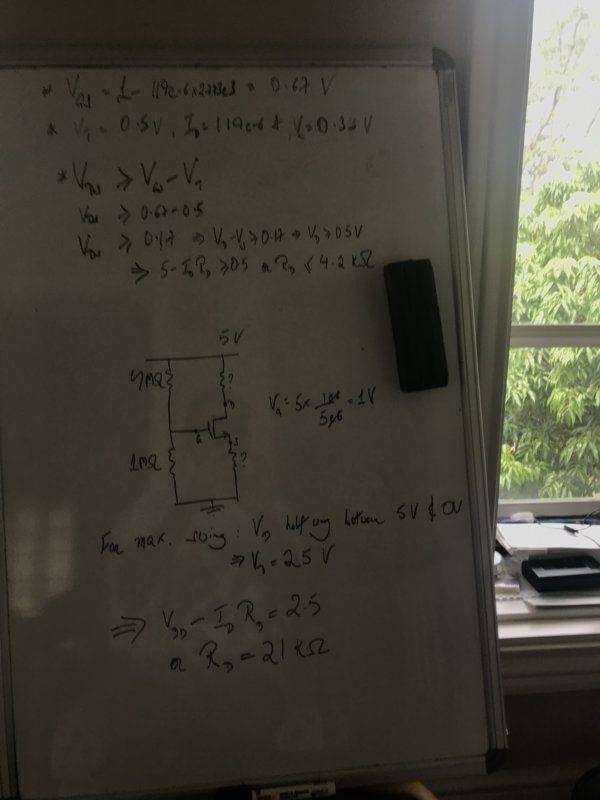 * V_GS = 1 - 119e-6x2773e3 = 0.67 V
* V_T = 0.5V, I_D = 119e-6A, V_S = 0.33V
* V_DS ≥ V_GS - V_T
V_DS ≥ 0.67-0.5
V_DS ≥ 0.17 ⇒ V_D-V_S ≥ 0.17 ⇒ V_D ≥ 0.5V
⇒ 5-I_D R_D ≥ 0.5 or R_D ≤ 4.2 kΩ
5V
4MΩ
?
D
V_G = 5x 1e6/5e6 = 1V
G
S
1MΩ
?
For max. swing: V_D half way between 5V & 0V
⇒ V_D = 2.5 V
⇒ V_DD - I_D R_D = 2.5
or R_D = 21 kΩ